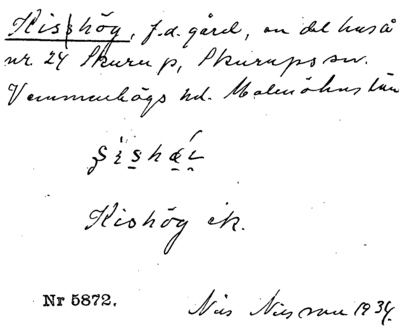 Kisshög, f.d. gård, en del hus å
nr. 24 Skurup, Skurups sn.
Vemmenhögs hd. Malmöhus län
Kishög ek.
Nr 5872.
Nils Nilsson 1934.